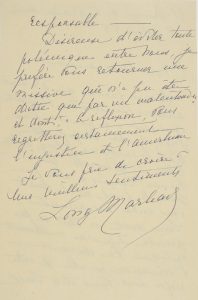 responsable —
Désireuse d'éviter toute
polémique entre nous, je
préfère vous retourner une
missive qui n'a pu être
dictée que par un malentendu
et dont à réflexion, vous
regretterez certainement
l'injustice et l'amertume
Je vous prie de croire à
mes meilleurs sentiments
Long